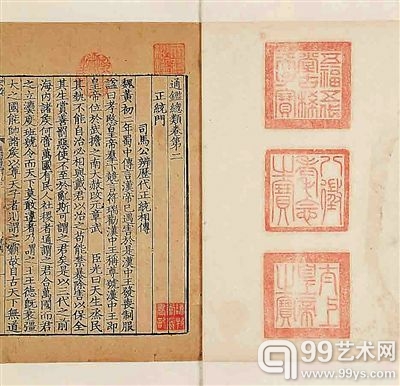 通鑑總類卷第二
正統門
司馬公辨歷代正統相傳
魏黃初二年蜀中傳言漢帝已遇害於是漢中王發喪制服
諡曰孝愍皇帝羣臣競言符瑞勸漢中王稱尊號漢中王即
皇帝位於武擔之南大赦改元章武 臣光曰天生烝民
其勢不能自治必相與戴君以治之苟能禁暴除害以保全
其生賞善罰惡使不至於亂斯可謂之君矣是以三代之前
海内諸侯何啻萬國有民人社稷者通謂之君合萬國而君
之立灋度班號令而天下莫敢違者乃謂之王王德旣衰彊
大之國能帥諸侯以尊天子者則謂之霸故自古天下無道
八徵耄念之寶
太上皇帝之寶
99艺术网
www.99ys.com